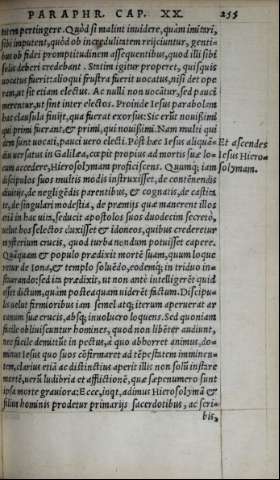 PARAPHR. CAP. XX. 255
tutem pertingere. Quòd si malint inuidere, quàm imitari,
sibi imputent, quòd ob incredulitatem reijciuntur, genti-
bus ob fidei promptitudinem assequentibus, quod illi sibi
solis deberi credebant. Statim igitur properet, quisquis
uocatus fuerit: alioqui frustra fuerit uocatus, nisi det ope
ram, ut sit etiam electus. Ac nulli non uocātur, sed pauci
merentur, ut sint inter electos. Proinde Iesus parabolam
hac clausula finijt, qua fuerat exorsus: Sic erūt nouißimi
qui primi fuerant, & primi, qui nouißimi. Nam multi qui
dem sunt uocati, pauci uero electi. Pòst hæc Iesus aliquā-
diu uersatus in Galilæa, cœpit propius ad mortis suæ lo-
cum accedere, Hierosolymam proficiscens. Quumq; iam
discipulos suos multis modis instruxisset, de contēnendis
diuitijs, de negligēdis parentibus, & cognatis, de castita
te, de singulari modestia, de præmijs quæ manerent illos
etiā in hac uita, seducit apostolos suos duodecim secretò,
uelut hos selectos duxisset & idoneos, quibus crederetur
mysterium crucis, quod turba nondum potuisset capere.
Quāquam & populo prædixit mortē suam, quum loque
retur de Iona, & templo soluēdo, eodemq; in triduo in-
staurando: sed ita prædixit, ut non antè intelligerēt quid
esset dictum, quàm posteaquam uiderēt factum. Discipu
lis uelut firmioribus iam semel atq; iterum aperuerat ar
canum suæ crucis, absq; inuolucro loquens. Sed quoniam
facile obliuiscuntur homines, quod non libēter audiunt,
nec facile demittūt in pectus, à quo abhorret animus, do-
minus Iesus quo suos cōfirmaret ad tēpestatem imminen-
tem, clarius etiā ac distinctius aperit illis non solū instare
mortē, uerū ludibria et afflictionē, quæ sæpenumero sunt
ipsa morte grauiora: Ecce, inqt, adimus Hierosolymā &
filius hominis prodetur primarijs sacerdotibus, ac scri-
bis,
Et ascendes
Iesus Hiero-
solymam.